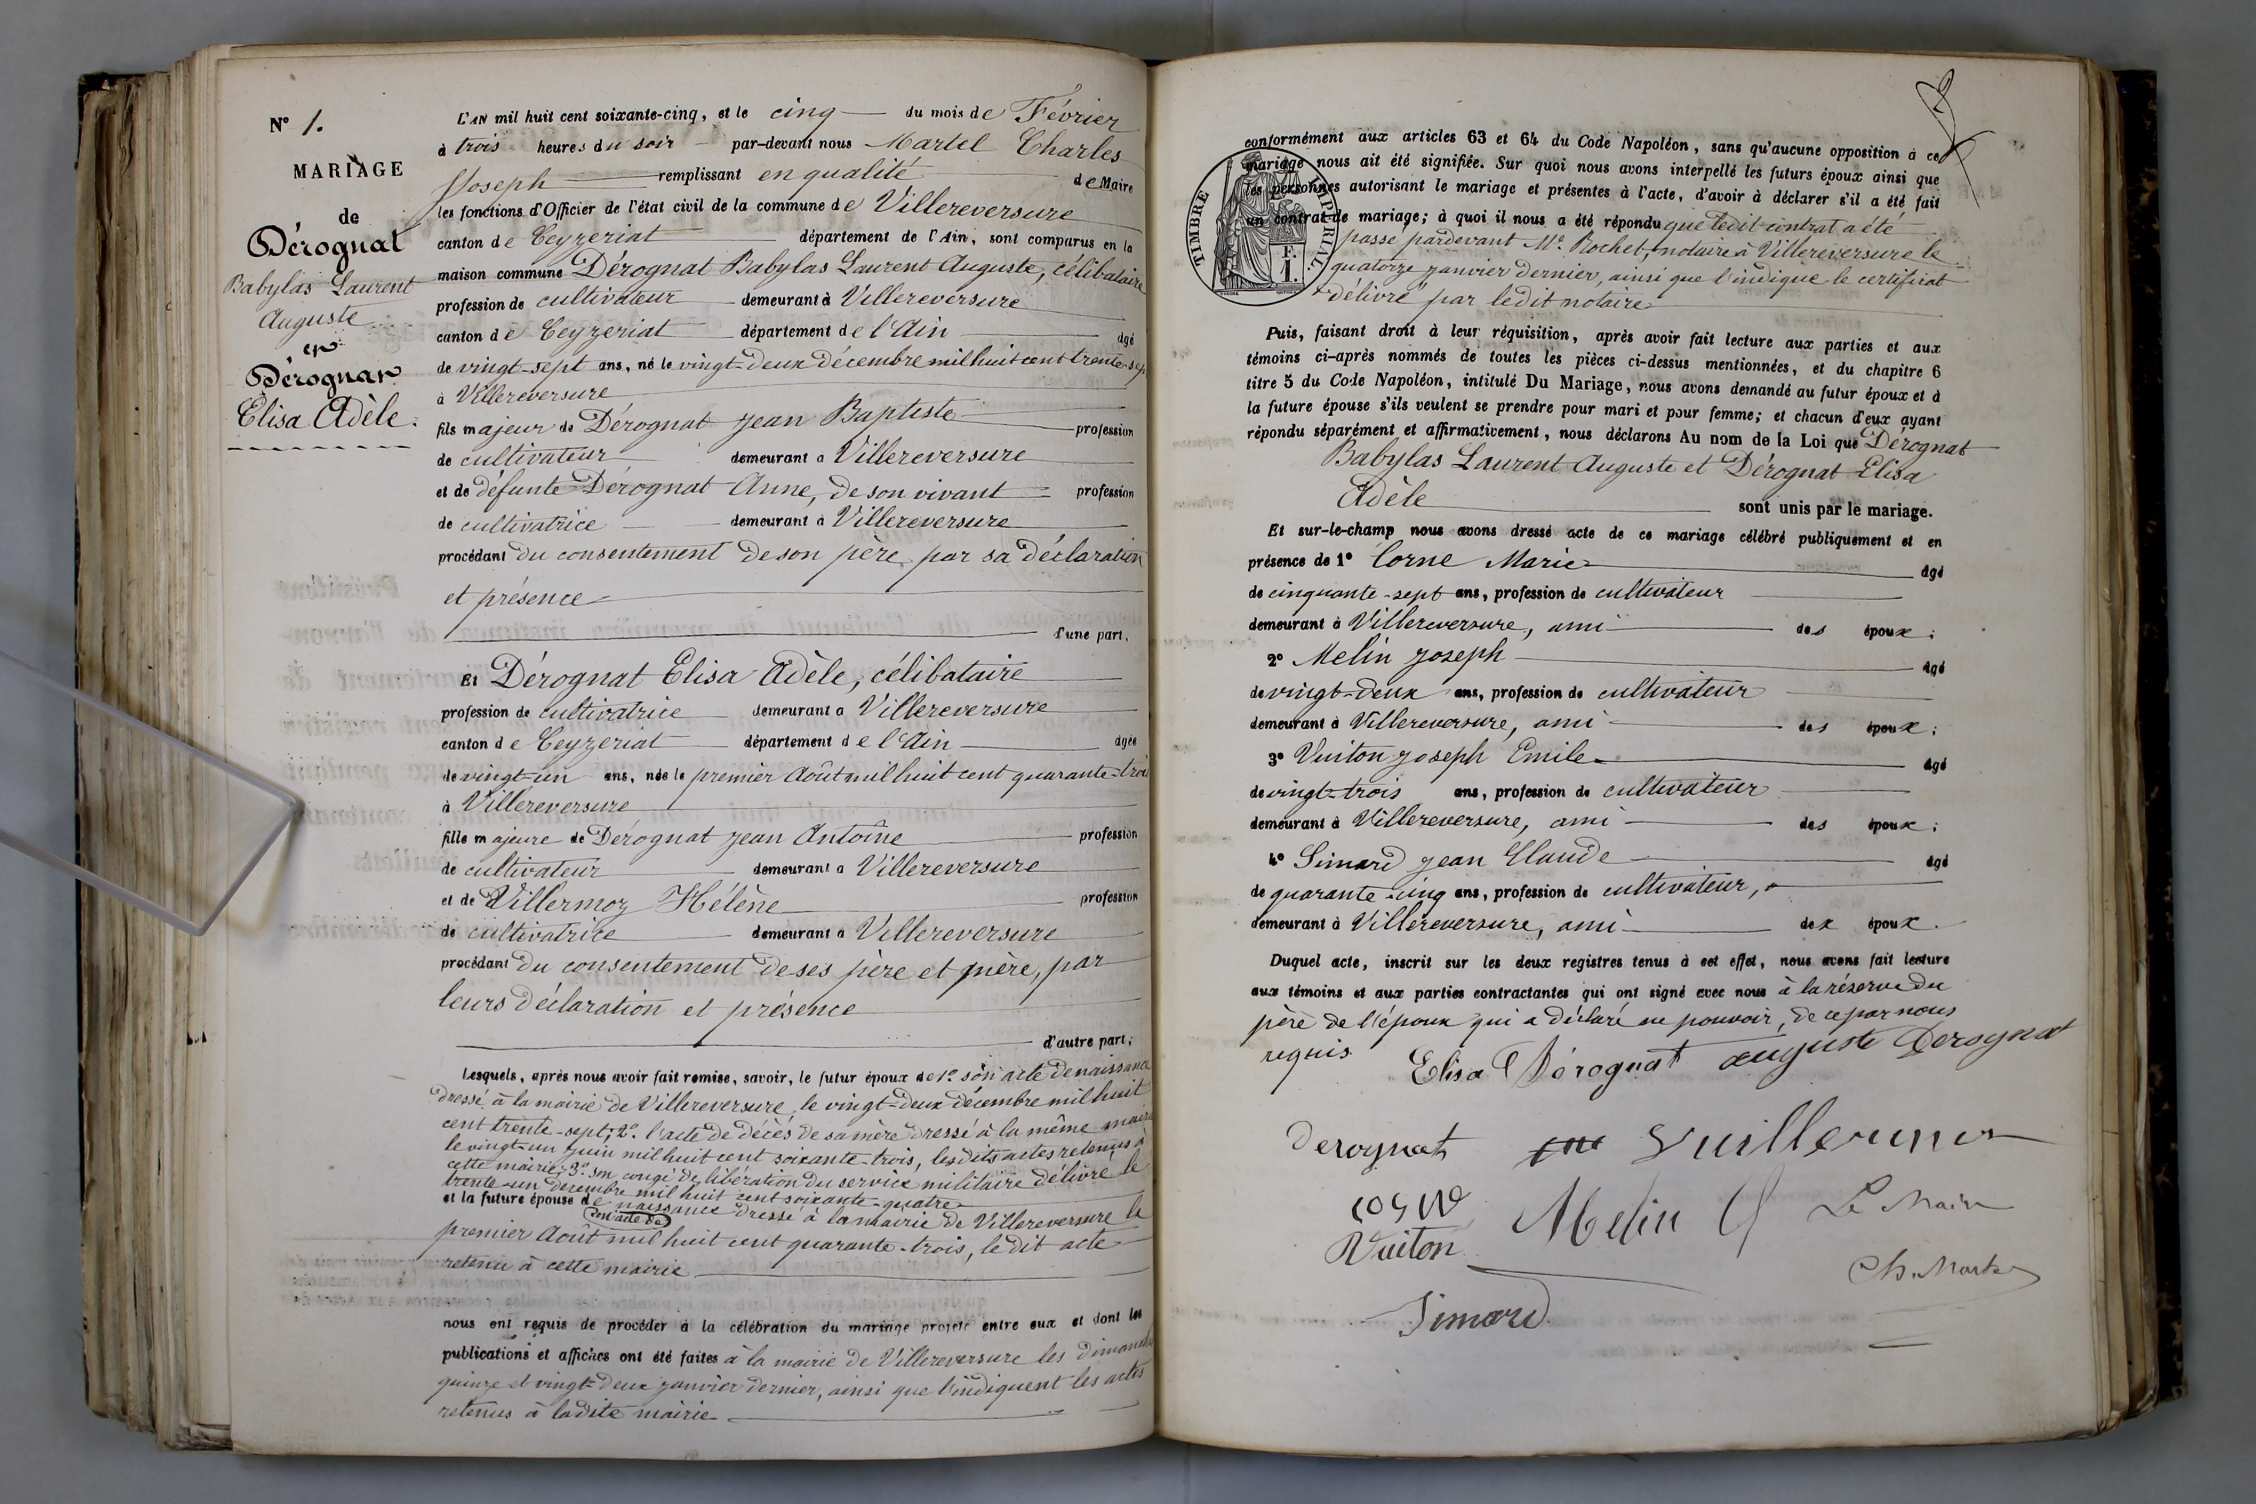 N° 1.
MARIAGE
de
Dérognat
Babylas Laurent
Auguste
et
Dérognat
Elisa Adèle.
L'AN mil huit cent soixante-cinq, et le cinq du mois de Février
à trois heures du soir par-devant nous Martel Charles
Joseph remplissant en qualité de Maire
les fonctions d'Officier de l'état civil de la commune de Villereversure
canton de Ceyzeriat département de l'Ain, sont comparus en la
maison commune Dérognat Babylas Laurent Auguste, célibataire
profession de cultivateur demeurant à Villereversure
canton de Ceyzeriat département de l'Ain âgé
de vingt-sept ans, né le vingt-deux décembre mil huit cent trente-sept
à Villereversure
fils majeur de Dérognat Jean Baptiste profession
de cultivateur demeurant à Villereversure
et de défunte Dérognat Anne, de son vivant profession
de cultivatrice demeurant à Villereversure
procédant du consentement de son père par sa déclaration
et présence
d'une part.
Et Dérognat Elisa Adèle, célibataire
profession de cultivatrice demeurant à Villereversure
canton de Ceyzeriat département de l'Ain âgée
de vingt-un ans, née le premier Août mil huit cent quarante-trois
à Villereversure
fille majeure de Dérognat Jean Antoine profession
de cultivateur demeurant à Villereversure
et de Villermoz Hélène profession
de cultivatrice demeurant à Villereversure
procédant du consentement de ses père et mère, par
leurs déclaration et présence
d'autre part;
Lesquels, après nous avoir fait remise, savoir, le futur époux de 1° son acte de naissance
dressé à la mairie de Villereversure, le vingt-deux décembre mil huit
cent trente-sept; 2°. l'acte de décès de sa mère dressé à la même mairie
le vingt-un juin mil huit cent soixante-trois, lesdits actes retenus à
cette mairie; 3°. son congé de libération du service militaire délivré le
trente-un décembre mil huit cent soixante-quatre
et la future épouse de son acte de naissance dressé à la mairie de Villereversure le
premier Août mil huit cent quarante-trois, le dit acte
retenu à cette mairie
nous ont requis de procéder à la célébration du mariage projeté entre eux et dont les
publications et affiches ont été faites à la mairie de Villereversure les dimanches
quinze et vingt-deux janvier dernier, ainsi que l'indiquent les actes
retenus à ladite mairie
conformément aux articles 63 et 64 du Code Napoléon, sans qu'aucune opposition à ce
mariage nous ait été signifiée. Sur quoi nous avons interpellé les futurs époux ainsi que
les personnes autorisant le mariage et présentes à l'acte, d'avoir à déclarer s'il a été fait
un contrat de mariage; à quoi il nous a été répondu que ledit contrat a été
passé pardevant Me. Rochet, notaire à Villereversure le
quatorze janvier dernier, ainsi que l'indique le certificat
délivré par ledit notaire
TIMBRE IMPÉRIAL
F.
1.
Puis, faisant droit à leur réquisition, après avoir fait lecture aux parties et aux
témoins ci-après nommés de toutes les pièces ci-dessus mentionnées, et du chapitre 6
titre 5 du Code Napoléon, intitulé Du Mariage, nous avons demandé au futur époux et à
la future épouse s'ils veulent se prendre pour mari et pour femme; et chacun d'eux ayant
répondu séparément et affirmativement, nous déclarons Au nom de la Loi que Dérognat
Babylas Laurent Auguste et Dérognat Elisa
Adèle sont unis par le mariage.
Et sur-le-champ nous avons dressé acte de ce mariage célébré publiquement et en
présence de 1° Corne Marie âgé
de cinquante-sept ans, profession de cultivateur
demeurant à Villereversure, ami des époux;
2° Melin Joseph âgé
de vingt-deux ans, profession de cultivateur
demeurant à Villereversure, ami des époux;
3° Vuiton Joseph Emile âgé
de vingt-trois ans, profession de cultivateur
demeurant à Villereversure, ami des époux;
4° Simard Jean Claude âgé
de quarante-cinq ans, profession de cultivateur,
demeurant à Villereversure, ami des époux.
Duquel acte, inscrit sur les deux registres tenus à cet effet, nous avons fait lecture
aux témoins et aux parties contractantes qui ont signé avec nous à la réserve du
père de l'époux qui a déclaré ne pouvoir, de ce par nous
requis
Elisa Dérognat auguste Derognat
derognat
Melin
Le Maire
Vuiton
Ch. Martel
Simard